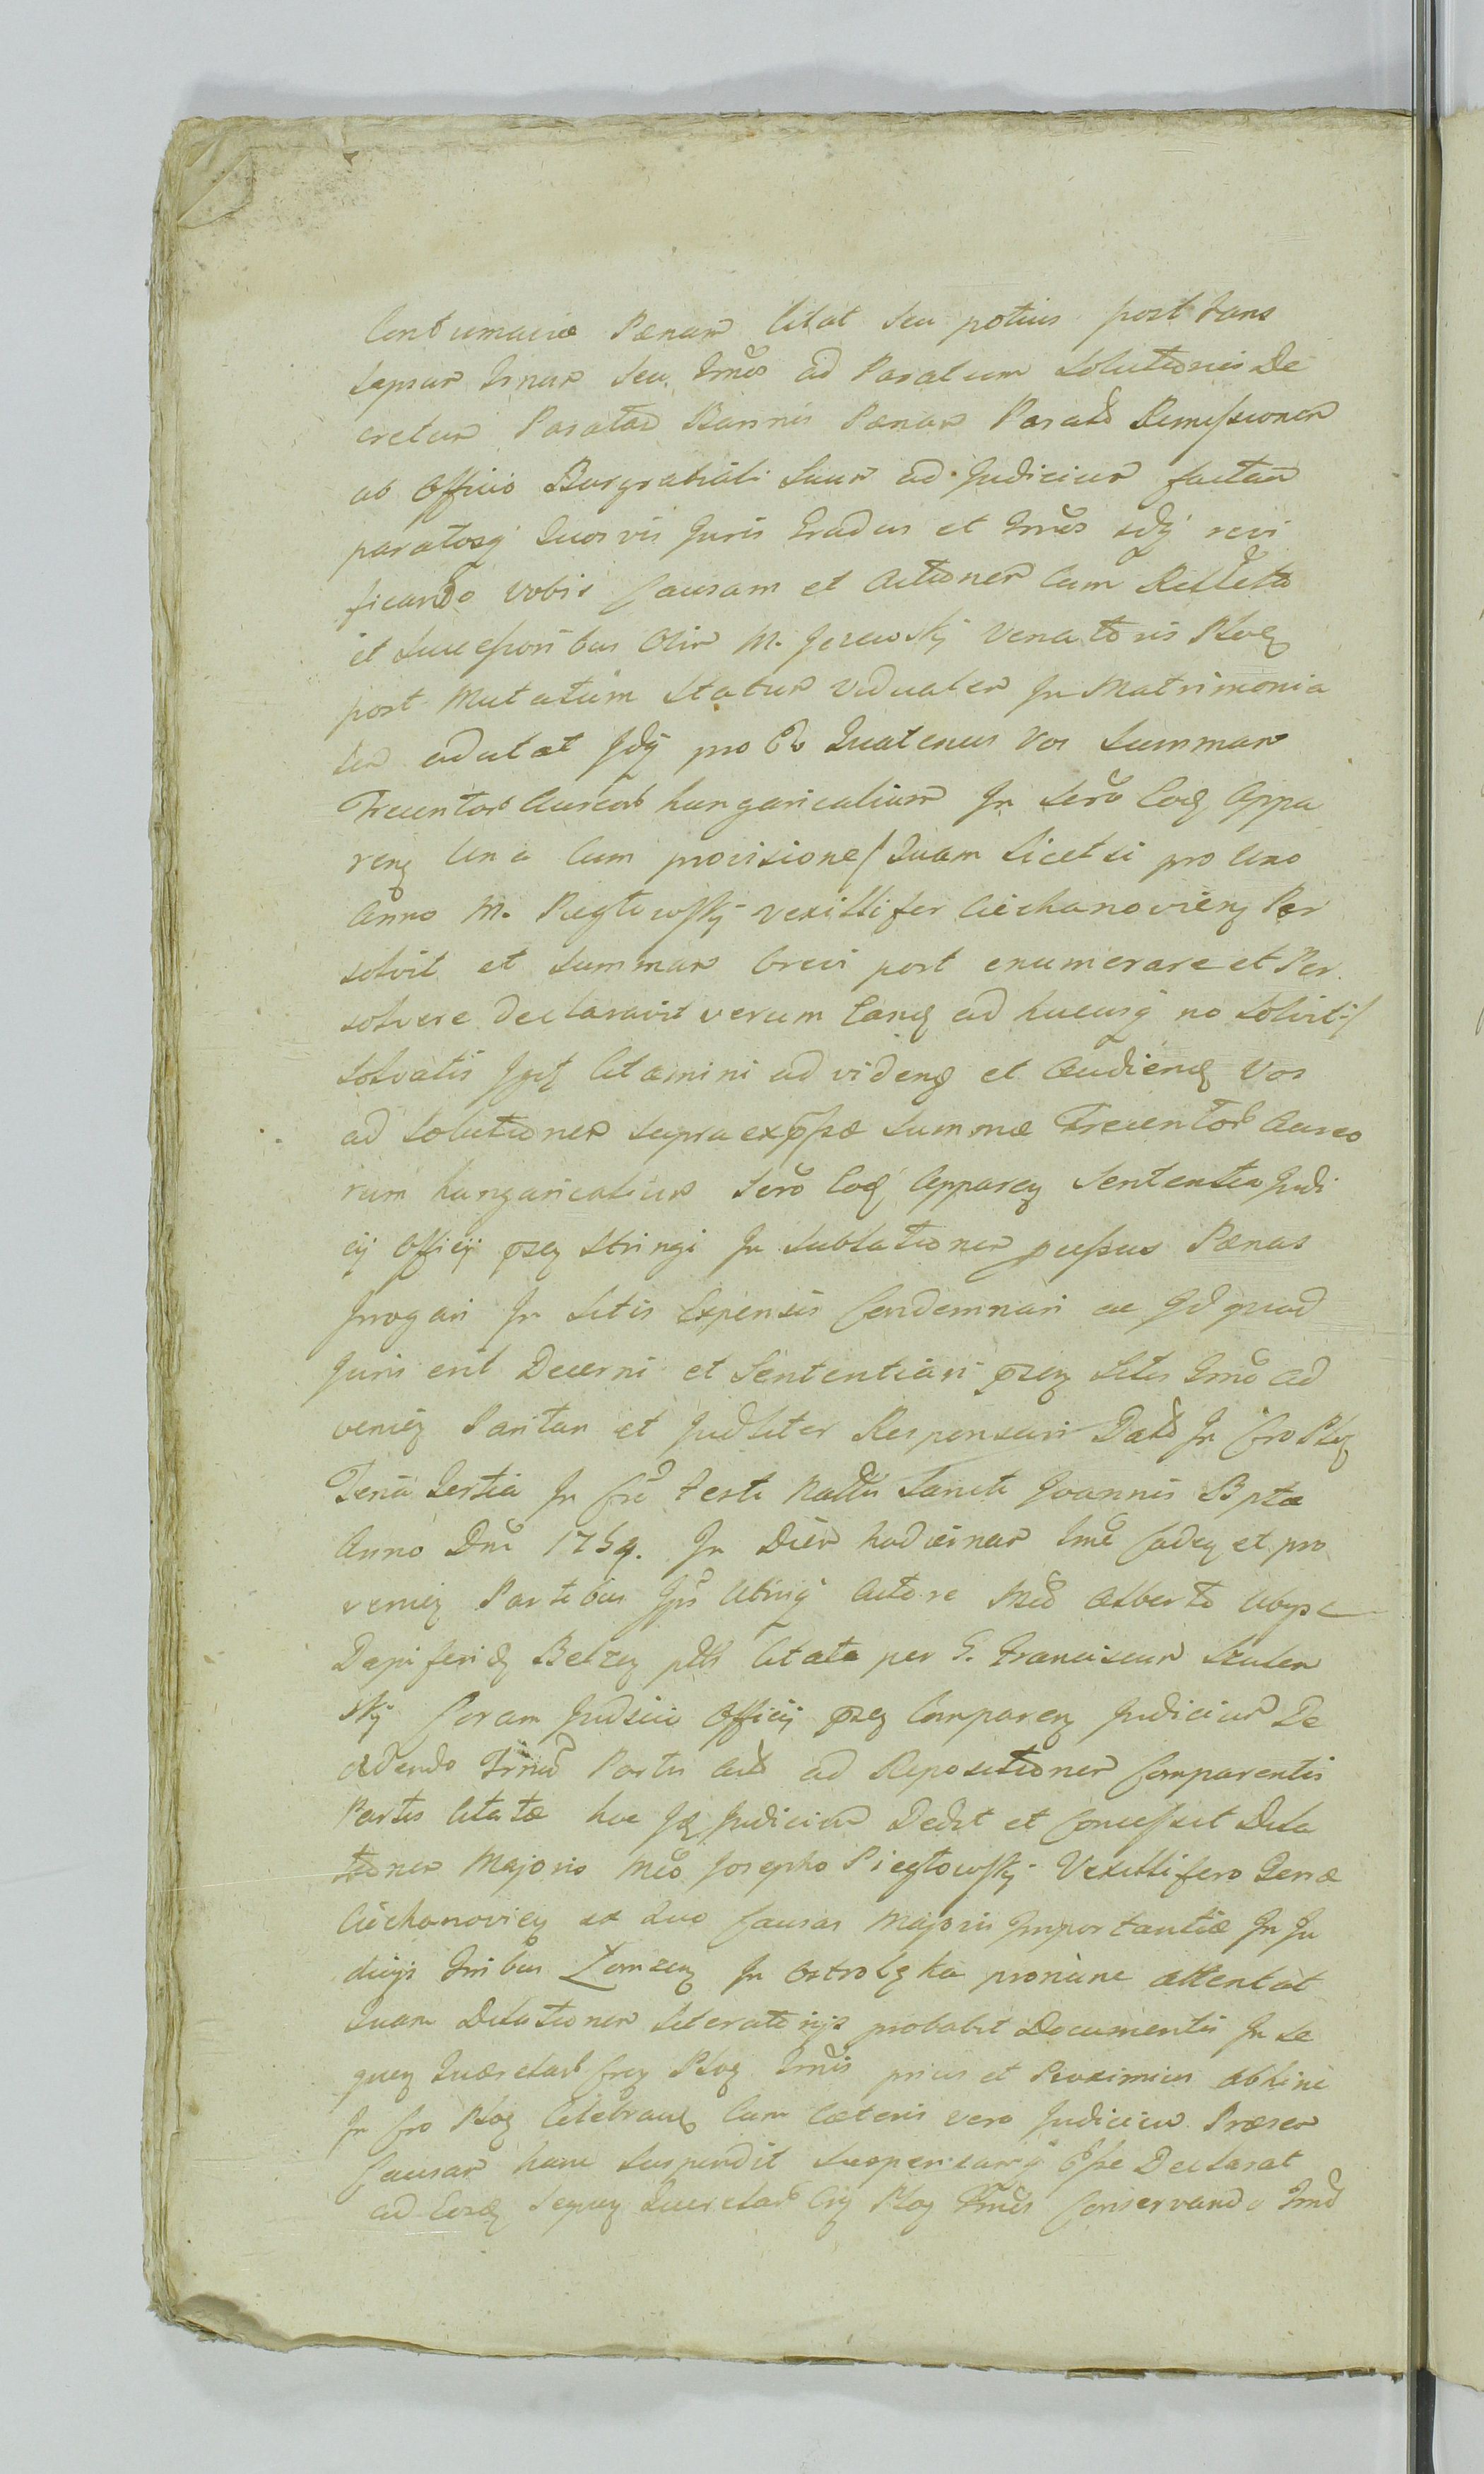 Contumaciæ Pænam Citat Seu potius post Tans
lapsum Trnum Seu Trnōs ad Paratum Solutionis De
cretum Paratas Bannis Pænas Paratā Remissionem
ab Officio Burgrabiali Suum ad Judicium factam
paratosq Quosvis Juris Gradus et Trnōs idq revi
ficando vobis Causam et Actionem Cum Relicta
et Successoribus Olim M. Jezewskij Venatoris Ploc
post Mutatum Statum Vidualem In Matrimonia
lem adcitat Idq pro Eo Quatenus Vos Summam
Trecentorb Aureorb hungaricalium In Serō Cog Appa
ren Una Cum provisione / Quam licet si pro Uno
Anno M. Pieglowskij Vexillifer Ciechanovien Per
solvit et Summam brevi post enumerare et Per
solvere declaravit verum Tang ad hucusq no Solvit /
Solvatis Citamini ad viden et Audiend Vos
ad Solutionem supra exprssæ Summæ Trecentorb Aureo
rum hungaricalium Serō Cog Apparen Sententia Judi
cij Officij pzen Stringi In Sublationem Pænas
Irrogari In Litis Expensis Condemnari ac Id quod
Juris erit Decerni et Sententiari pzen Litis Trnō ad
venien Paritur et Judliter Responsuri Datt In Cro Ploc
Feria Tertia In Crō Festi Natts Sancti Joannis Bptæ
Anno Dnī 1759. In Diem hodiernam Trnī Caden et pro
venien Partibus Ips Utrinq Actore Mco Alberto Ubysz
Dapiferid Belzen ptts Citata per G. Franciscum Szulen
skij Coram Judicio Officij pzen Comparen Judicium De
cedendo Trnum Partis Act ad Repositionem Comparentis
Partis Citatæ hoc Id Judicium Dedit et Concessit Dila
tionem Majoris Mco Josepho Pieglowskij Vexillifero Terræ
Ciechanovien ex Quo Causas Majoris Importantiæ In Ju
dicijs Trribus Łomzen In Ostrolęka pronunc attentat
Quam Dilationem Literatorijs probabit Documentis In Se
quen Quærelarb Cren Ploc Trnīs prius et Proximius abhinc
In Cro Ploc Celebrand Cum Cæteris vero Judicium Præsen
Causam hanc Suspendit Suspensamq Esse Declarat
ad Eosd Sequen Querelarb Crn Ploc Trnōs Conservando Trnō